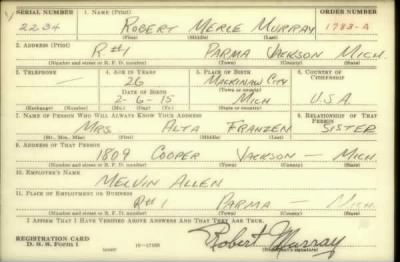 SERIAL NUMBER 1. NAME (Print) ORDER NUMBER
2234 ROBERT MERLE MURRAY 1783-A
(First) (Middle) (Last)
2. ADDRESS (Print)
R#1 PARMA JACKSON MICH.
(Number and street or R. F. D. number) (Town) (County) (State)
3. TELEPHONE 4. AGE IN YEARS 5. PLACE OF BIRTH 6. COUNTRY OF CITIZENSHIP
— 26 MACKINAW CITY
DATE OF BIRTH (Town or county)
2-6-15 MICH U.S.A.
(Exchange) (Number) (Mo.) (Day) (Yr.) (State or country)
7. NAME OF PERSON WHO WILL ALWAYS KNOW YOUR ADDRESS 8. RELATIONSHIP OF THAT PERSON
MRS. ALTA FRANZEN SISTER
(Mr., Mrs., Miss) (First) (Middle) (Last)
9. ADDRESS OF THAT PERSON
1809 COOPER JACKSON — MICH.
(Number and street or R. F. D. number) (Town) (County) (State)
10. EMPLOYER'S NAME
MELVIN ALLEN
11. PLACE OF EMPLOYMENT OR BUSINESS
R#1 PARMA — MICH.
(Number and street or R. F. D. number) (Town) (County) (State)
I AFFIRM THAT I HAVE VERIFIED ABOVE ANSWERS AND THAT THEY ARE TRUE.
REGISTRATION CARD
D. S. S. Form 1 Robert Murray